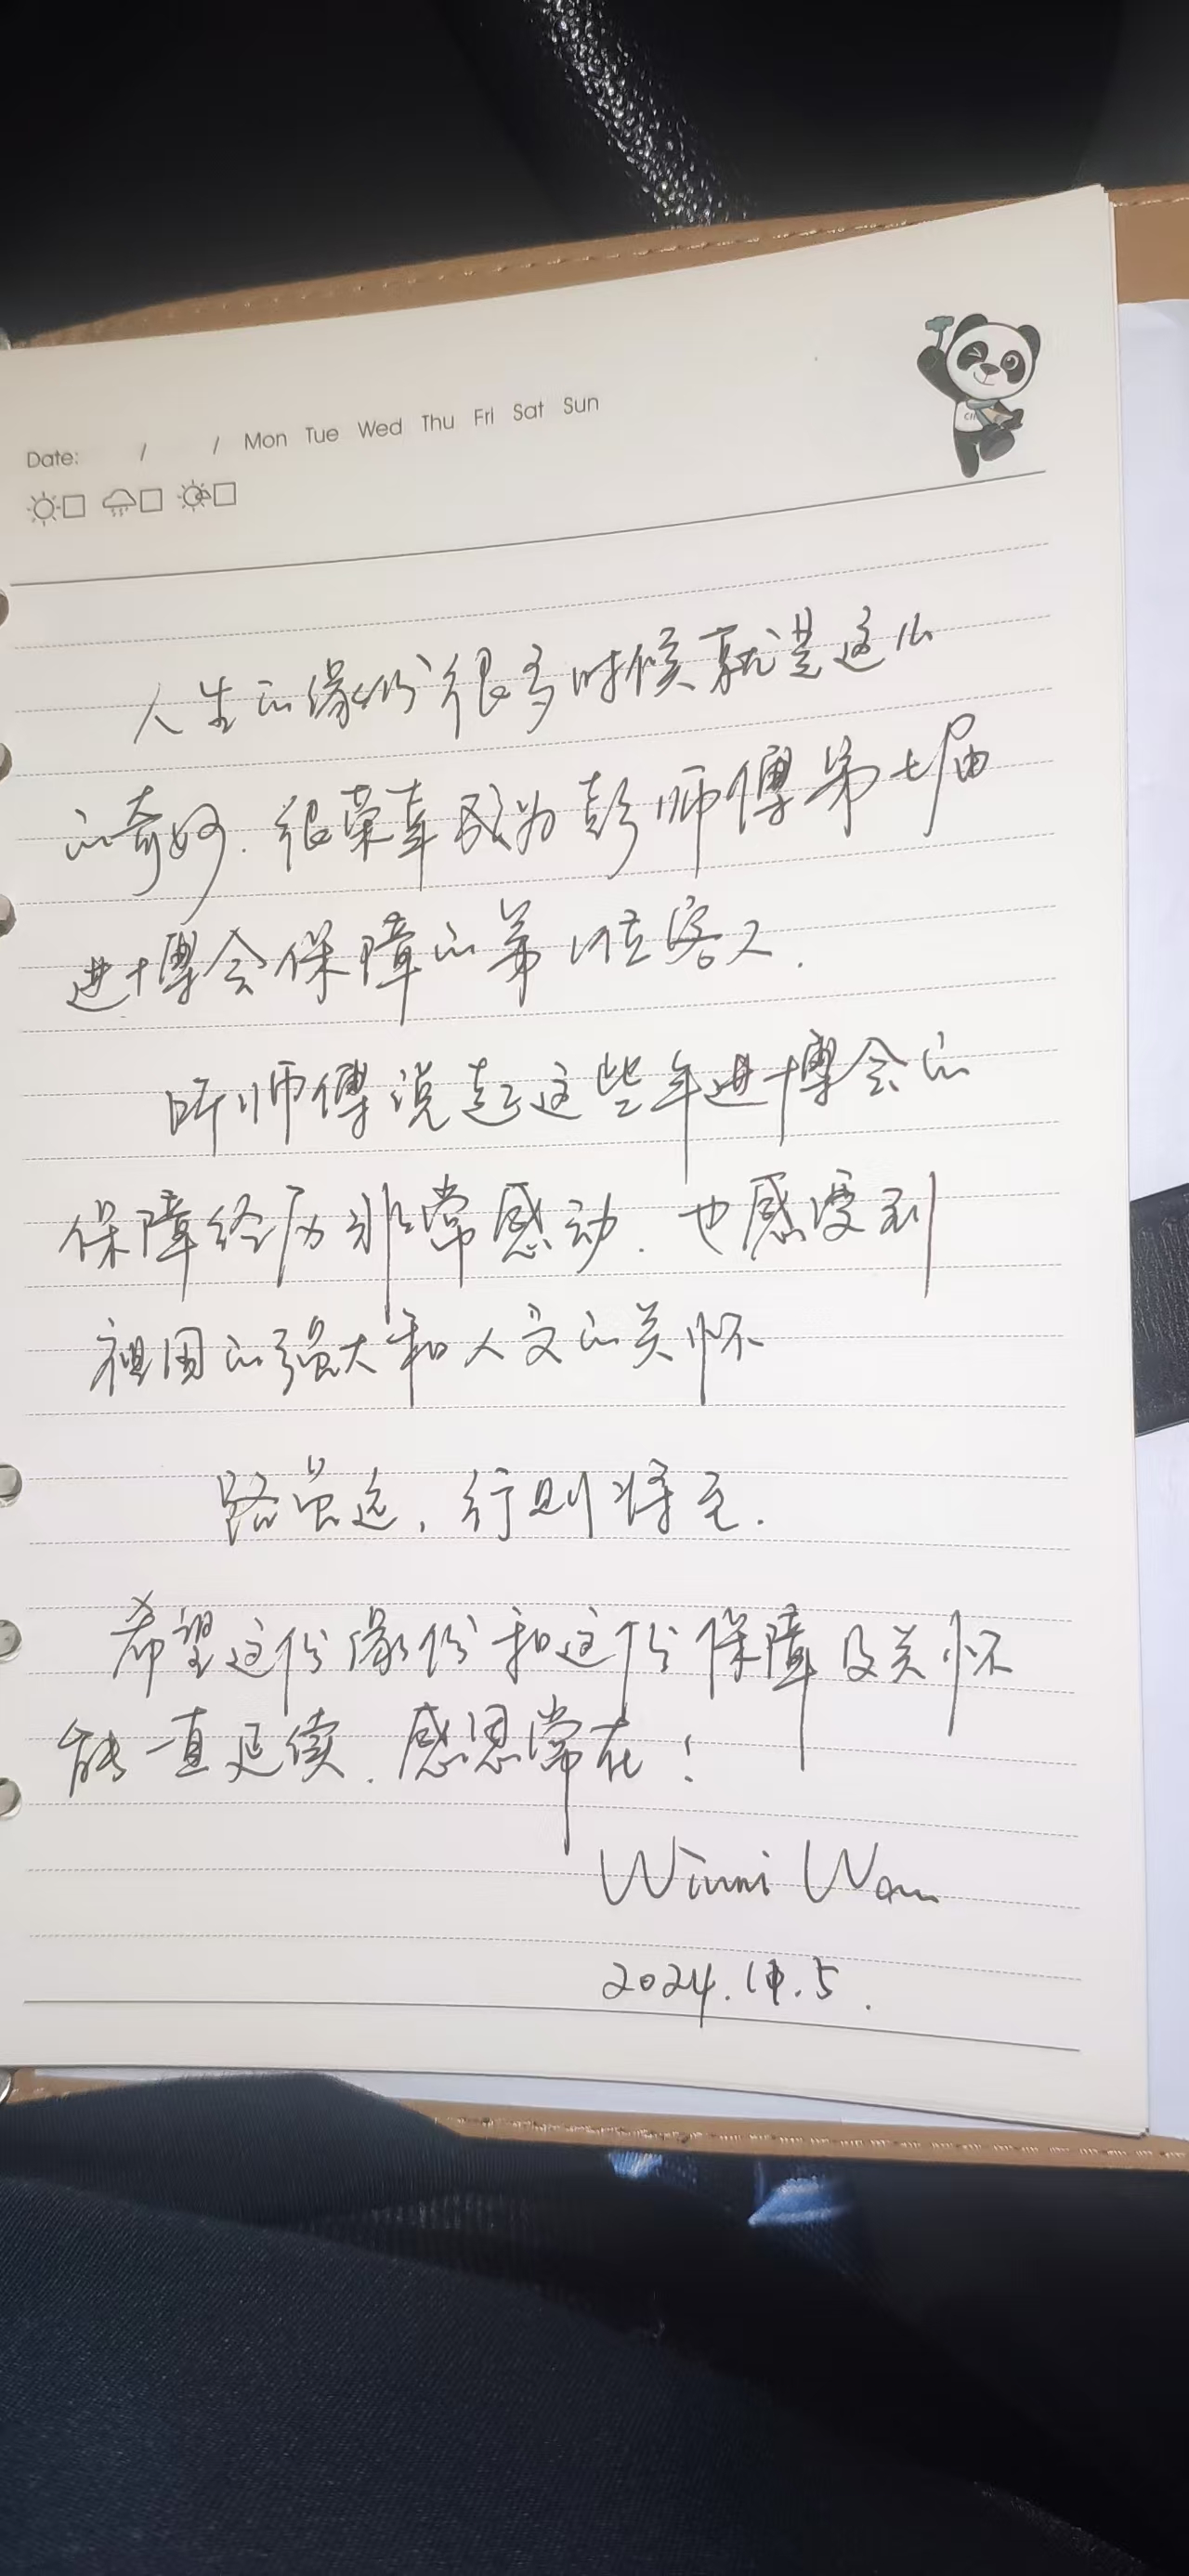 Date: / / Mon Tue Wed Thu Fri Sat Sun
人生的缘份很多时候就是这么
的奇妙.很荣幸成为彭师傅第七届
进博会保障的第1位客人.
听师傅说起这些年进博会的
保障经历非常感动.也感受到
祖国的强大和人文的关怀
路虽远,行则将至.
希望这份缘份和这份保障及关怀
能一直延续.感恩常在!
Winni Wan
2024.11.5.